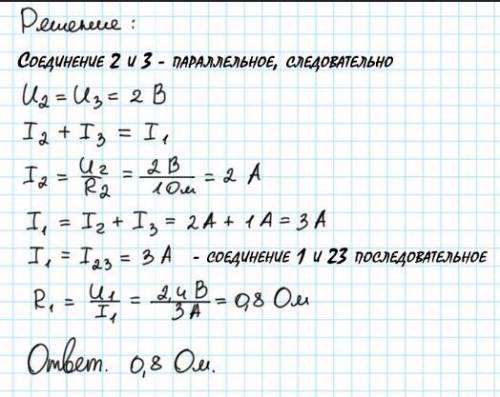 Решение:
Соединение 2 и 3 - параллельное, следовательно
U₂ = U₃ = 2 В
I₂ + I₃ = I₁
I₂ = U₂/R₂ = 2 В/1 Ом = 2 А
I₁ = I₂ + I₃ = 2А + 1А = 3А
I₁ = I₂₃ = 3А - соединение 1 и 23 последовательное
R₁ = U₁/I₁ = 2,4 В/3А = 0,8 Ом
Ответ. 0,8 Ом.